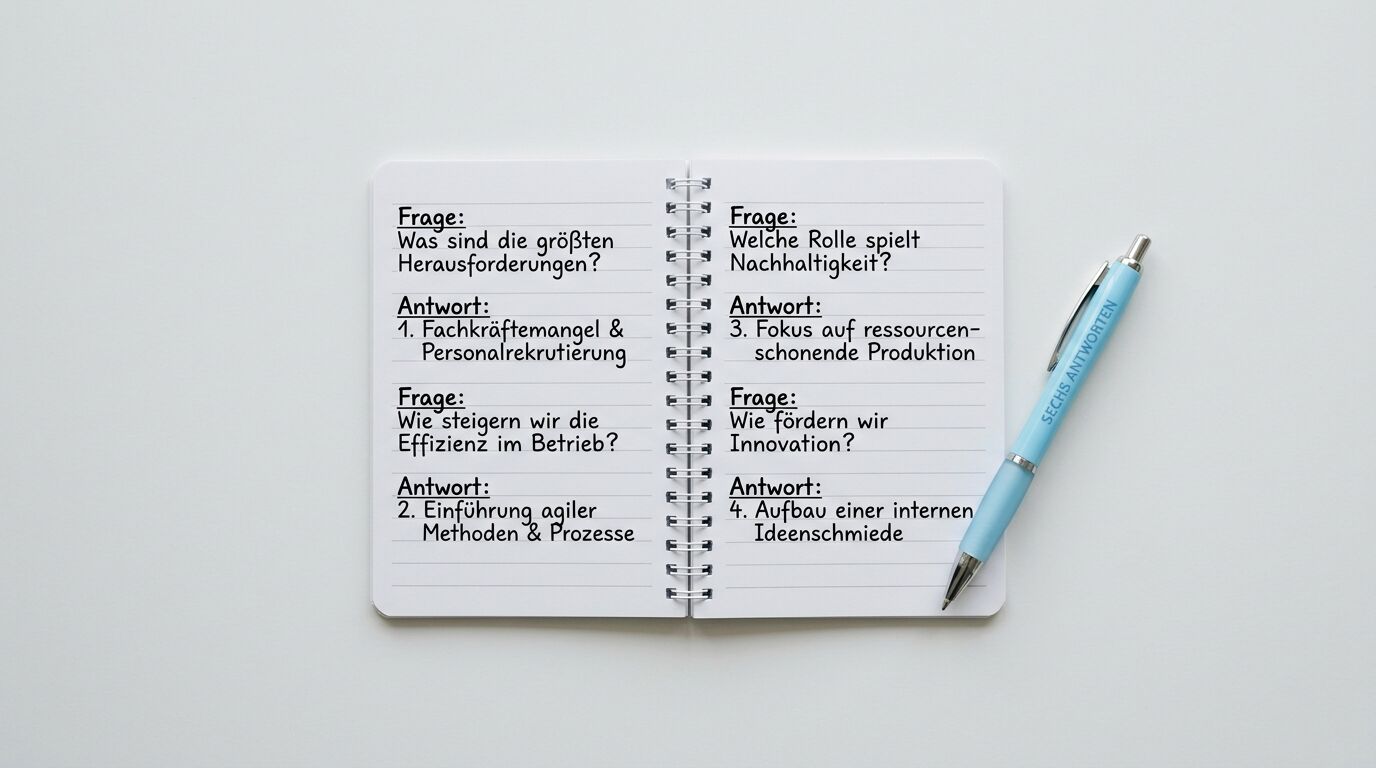 Frage:
Was sind die größten
Herausforderungen?
Antwort:
1. Fachkräftemangel &
Personalrekrutierung
Frage:
Wie steigern wir die
Effizienz im Betrieb?
Antwort:
2. Einführung agiler
Methoden & Prozesse
Frage:
Welche Rolle spielt
Nachhaltigkeit?
Antwort:
3. Fokus auf ressourcen-
schonende Produktion
Frage:
Wie fördern wir
Innovation?
Antwort:
4. Aufbau einer internen
Ideenschmiede
SECHS ANTWORTEN